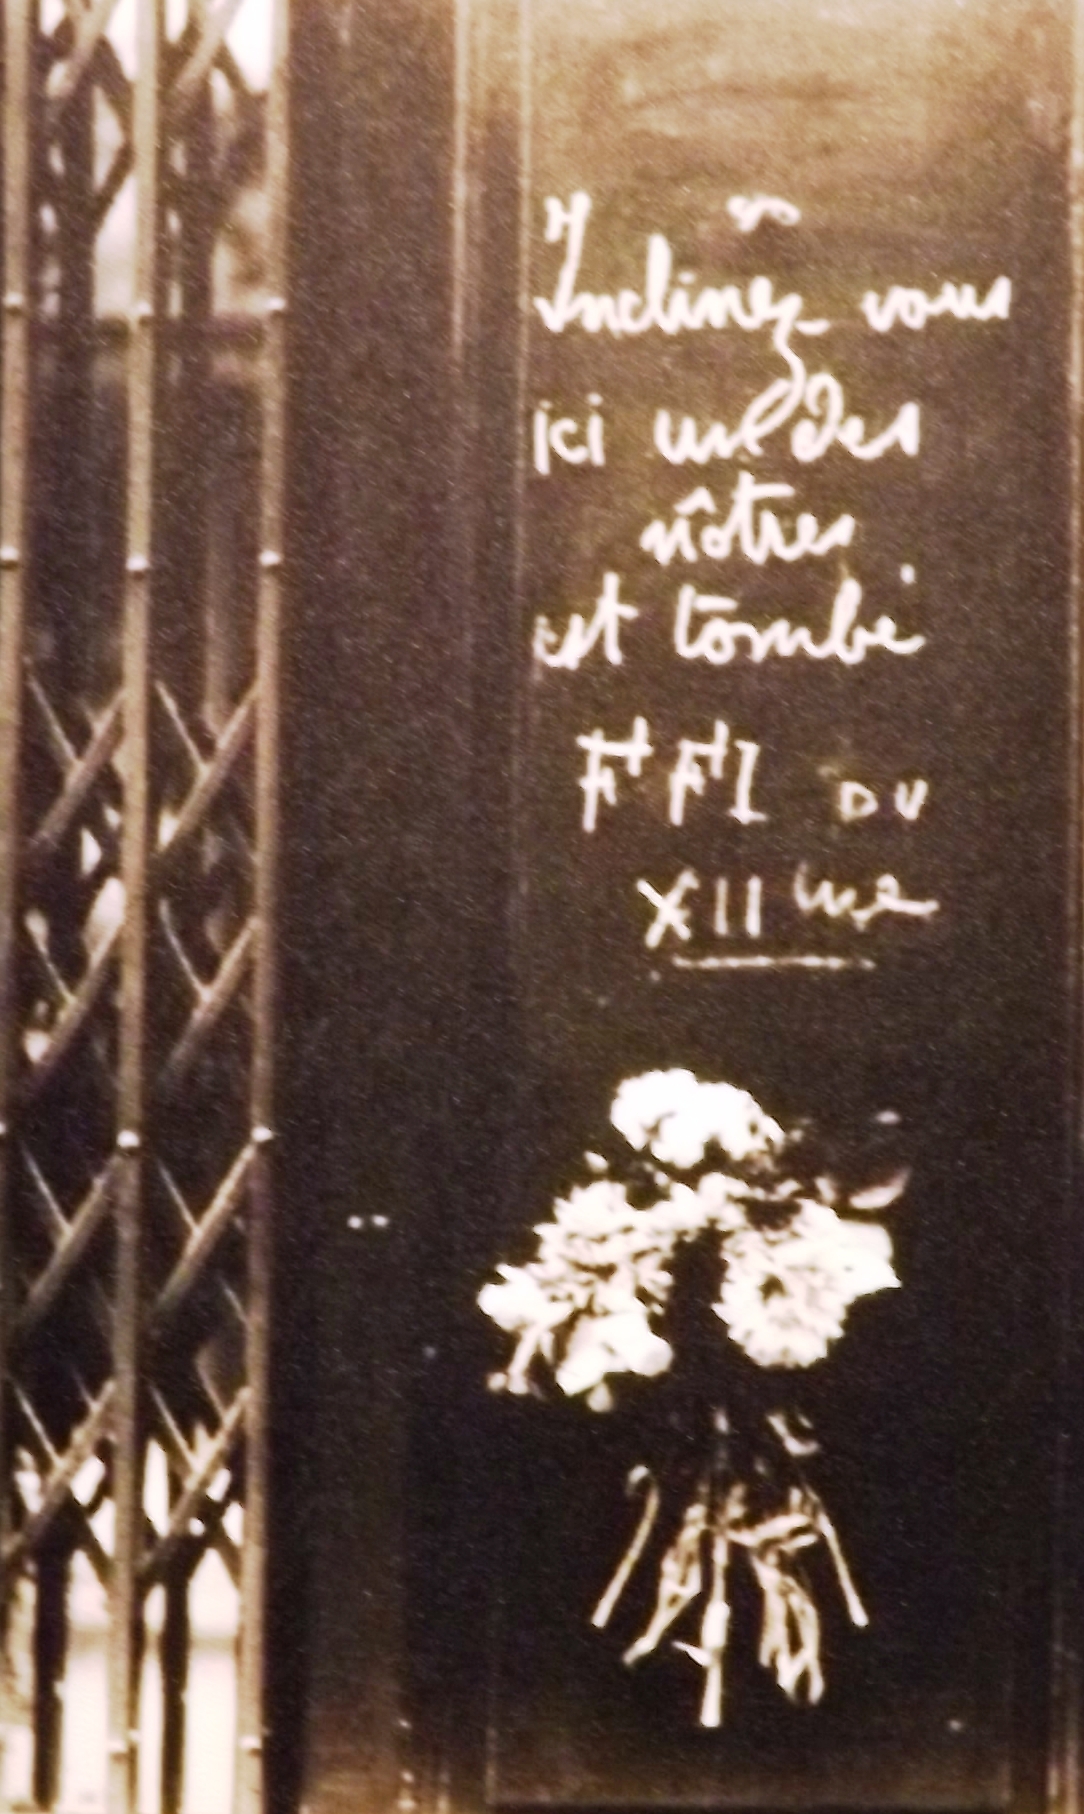 Inclinez-vous
ici un des
nôtres
est tombé
FFI DU
XII ème